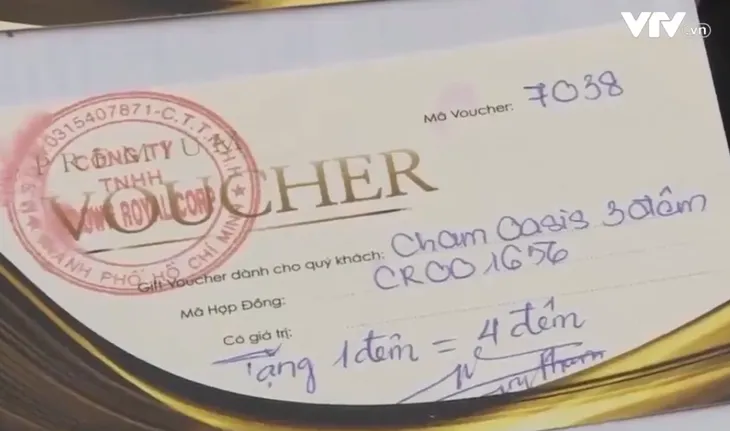 VTV.vn
Mã Voucher: 7038
PREMIUM
VOUCHER
0315407871-C.T.T.N.H.H
CÔNG TY
TNHH
ROYAL CORP
THÀNH PHỐ HỒ CHÍ MINH
Gift Voucher dành cho quý khách: Cham Oasis 3 đêm
Mã Hợp Đồng: CROO 1656
Có giá trị:
Tặng 1 đêm = 4 đêm